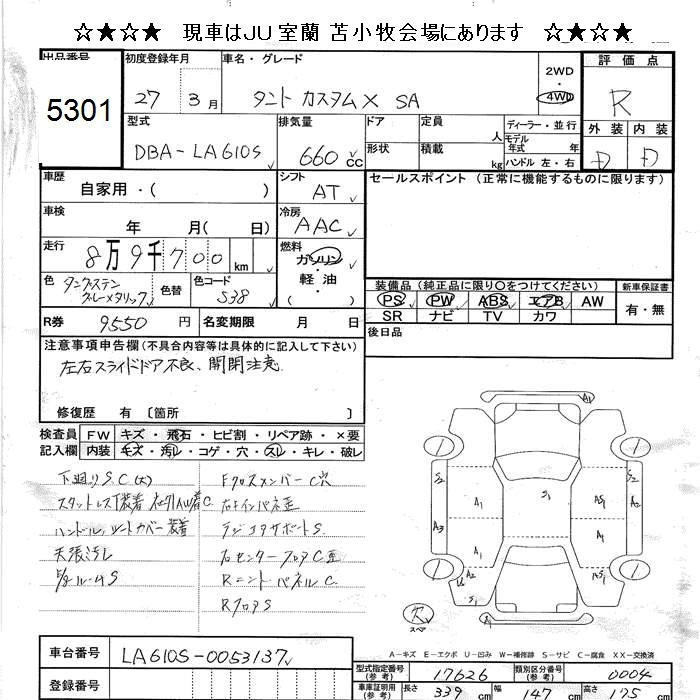 ☆★☆★ 現車はJU室蘭 苫小牧会場にあります ☆★☆★
出品番号
5301
初度登録年月
27 3月
車名・グレード
タント カスタムX SA
2WD
・
4WD
評価点
R
外装 内装
D D
型式
DBA-LA610S
排気量
660cc
ドア
形状
定員
人
積載
kg
ディーラー・並行
モデル年式 年
ハンドル 左・右
車歴
自家用・( )
シフト
AT
セールスポイント (正常に機能するものに限ります)
車検
年 月( 日)
冷房
AAC
走行
8万9千700km
燃料
ガソリン
・
軽油
( )
色
タングステングレーメタリック
色替
色コード
S38
装備品(純正品に限り○をつけてください)
PS PW ABS エアB AW
SR ナビ TV カワ
新車保証書
有・無
R券
9550円
名変期限 月 日
後日品
注意事項申告欄(不具合内容等は具体的に記入して下さい)
左右スライドドア不良、開閉注意
修復歴 有 〔箇所 〕
検査員記入欄
FW キズ・飛石・ヒビ割・リペア跡・×要
内装 キズ・汚レ・コゲ・穴・スレ・キレ・破レ
下廻りS.C(大)
スタットレス下装着
ハンドル、シートカバー装着
天張汚レ
ルームS
FクロスメンバーC穴
右インパネ歪
ラジエタサポートS
右センターフロアC歪
RエンドパネルC
RフロアS
A1
S2
A1
S1
AS1
S2
A3
A2
A1
A1
A2
AS1
A1
欠
スペア
A-キズ E-エクボ U-凹み W-補修跡 S-サビ C-腐食 XX-交換済
車台番号
LA610S-0053137
登録番号
型式指定番号(参考)
17626
類別区分番号(参考)
0004
車庫証明用(参考)
長さ 339cm
幅 147cm
高さ 175cm